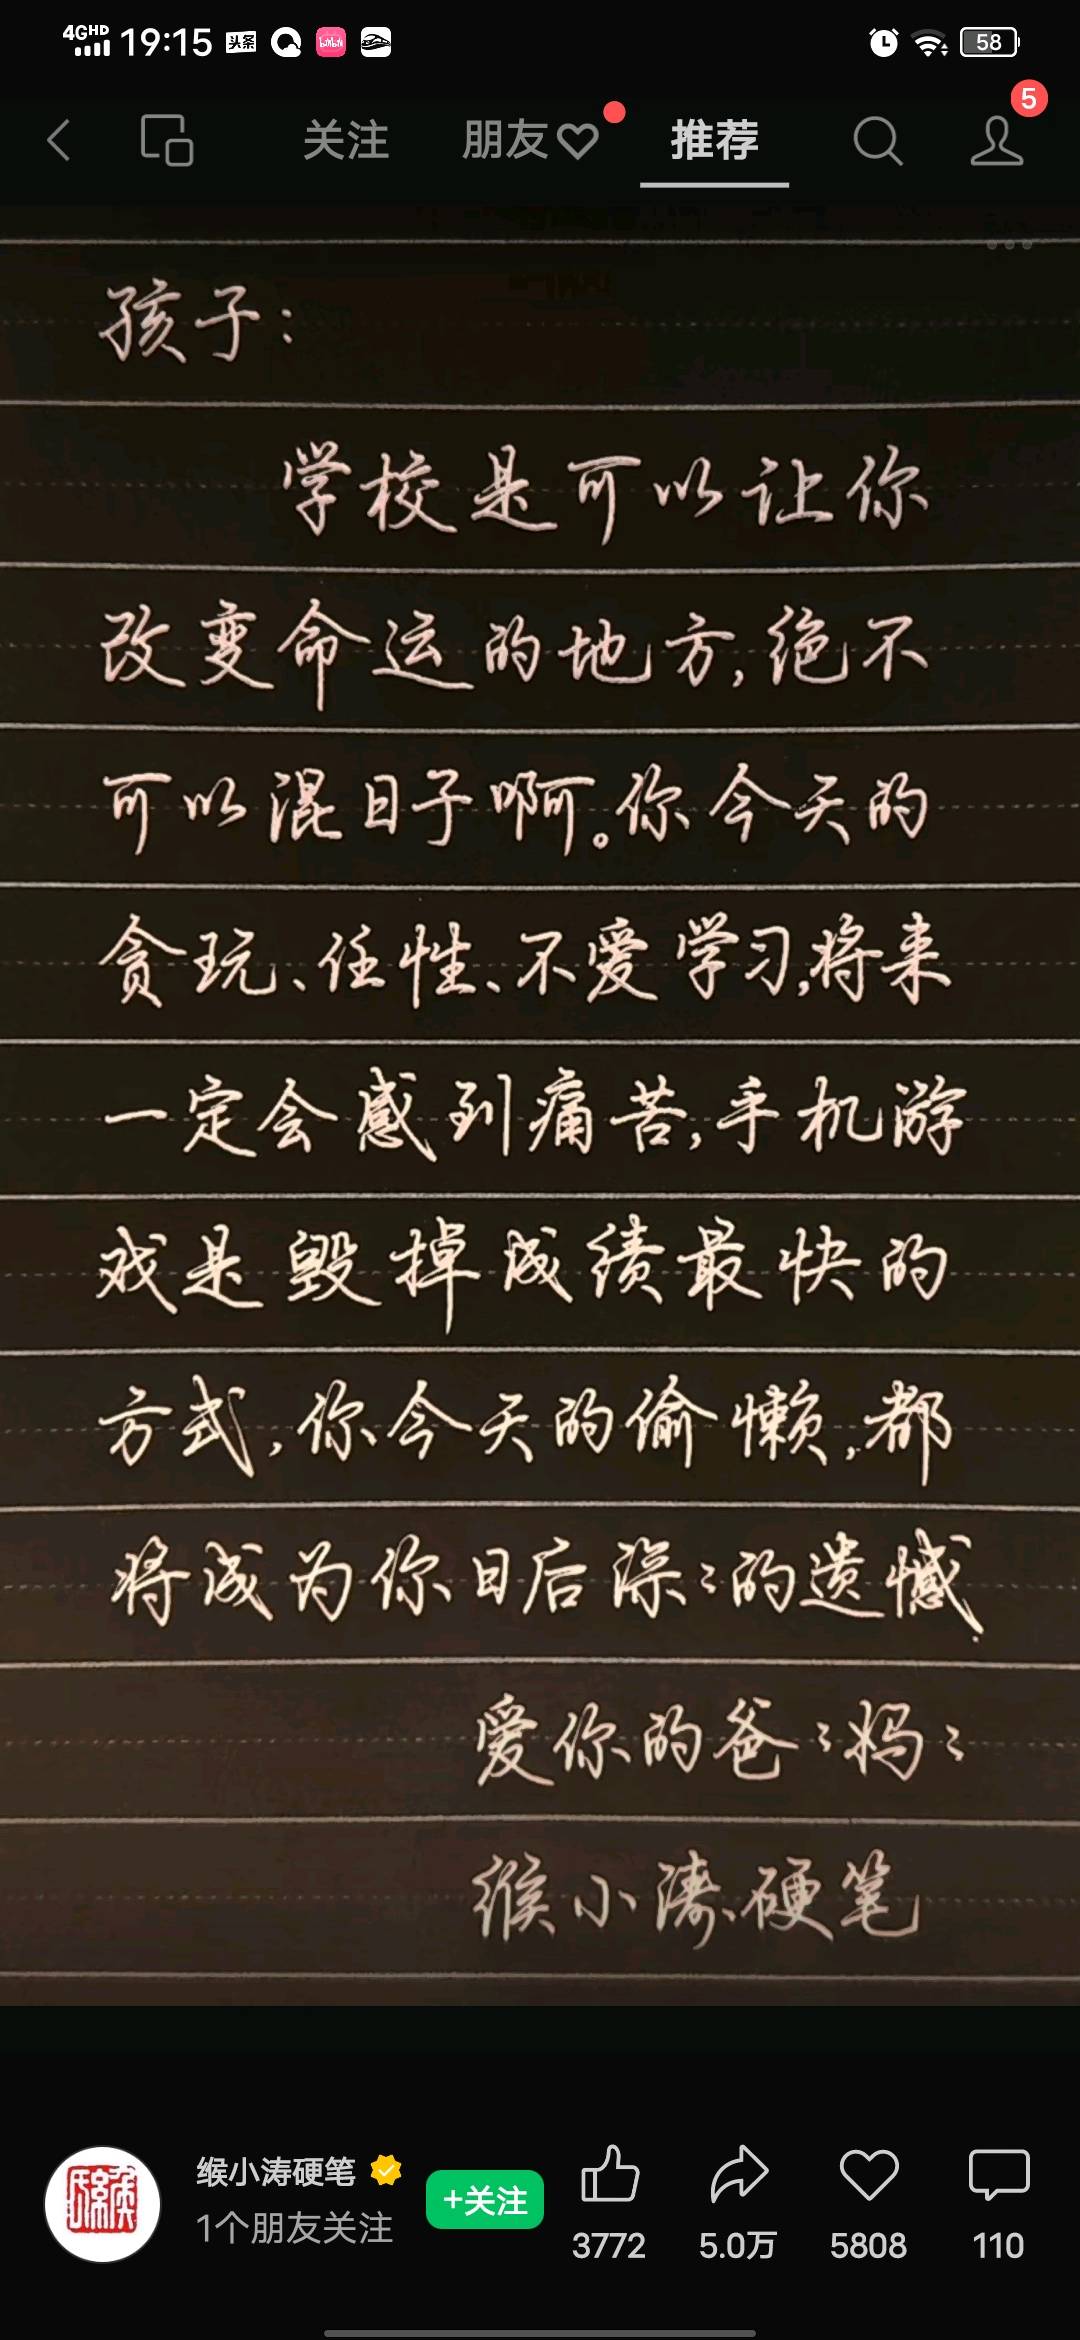 4GHD 19:15 头条 58
关注 朋友 推荐 5
孩子:
学校是可以让你
改变命运的地方,绝不
可以混日子啊。你今天的
贪玩、任性、不爱学习,将来
一定会感到痛苦,手机游
戏是毁掉成绩最快的
方式,你今天的偷懒,都
将成为你日后深〻的遗憾.
爱你的爸〻妈〻
缑小涛硬笔
缑小涛硬笔
1个朋友关注
+关注
3772 5.0万 5808 110